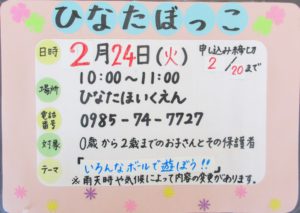 ひなたぼっこ
日時 2月24日(火) 申し込み締切 2/20まで
10:00〜11:00
場所 ひなたほいくえん
電話番号 0985-74-7727
対象 0歳から2歳までのお子さんとその保護者
テーマ 「いろんなボールで遊ぼう!!」
※雨天時や気候によって内容の変更があります。